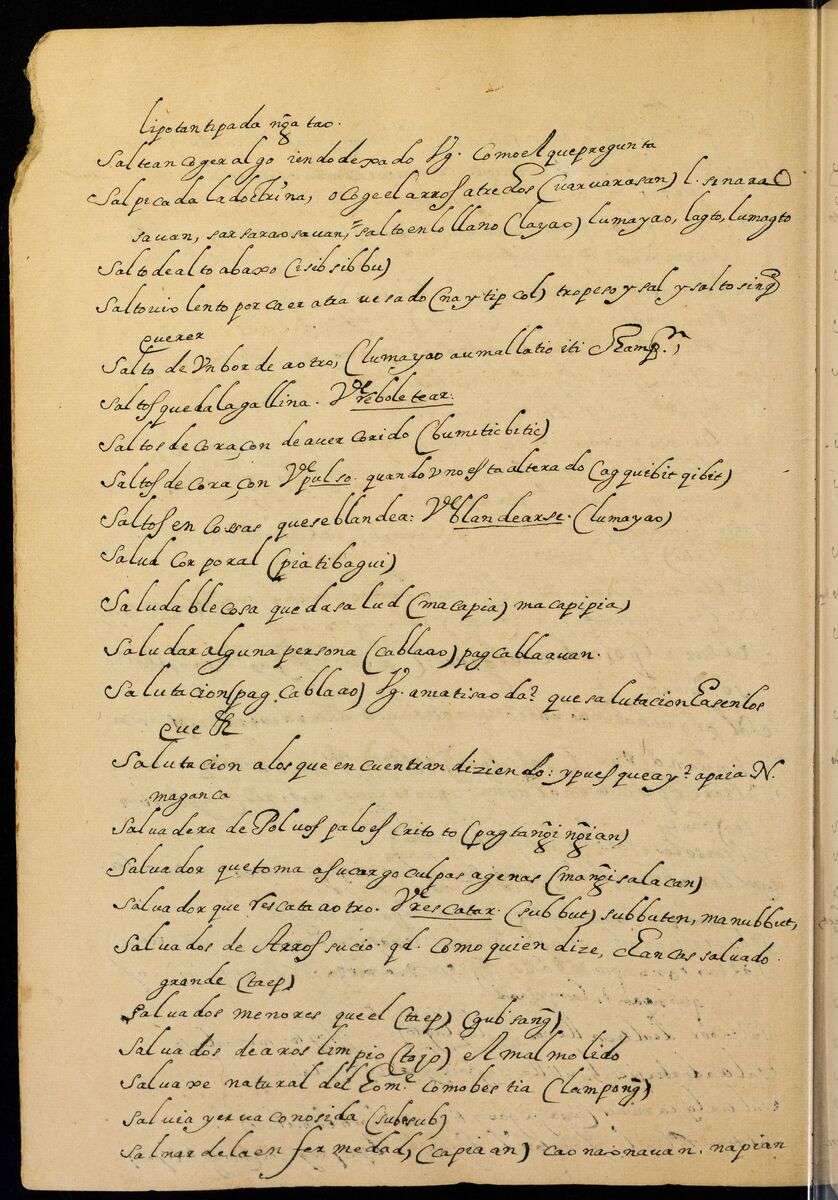 lipotantipada ng̃a tao.
Saltean coger algo iendo dexado Vg. Como el que pregunta
Salpicada la doctrina, o coge el arros atrechos (uaruarasan) l. sinarao
sauan, sarsaraosauan, salto en lo llano (layao) lumayao, lagto, lumagto
Salto de alto abaxo (isibsibbu)
Salto uiolento por caer atrauesado (naytipcol) tropeso y sal y salto sing̃
querer
Salto de Vn borde a otro, (lumayao aumallatio iti
Saltos que da la gallina. Vde reboletear.
Saltos de coraçon de auer corido (bumiticbitic)
Saltos de coraçon Vde pulso. quando vno esta alterado (agquibit qibit)
Saltos en cossas que se blandea: Vde blandearse. (lumayao)
Salud corporal (piatibagui)
Saludable cosa que da salud (macapia) macapipia,
Saludar alguna persona (cablaao) pagcablaauan.
Salutacion (pag cablaao) Vg. amatisaoda? que salutacion Ea senilos
que
Salutacion a los que encuentran diziendo: ypues que ay? apaia N.
maganca
Saluadera de Poluos palo escrito to (pagtang̃ing̃ian)
Saluador que toma a su cargo culpas agenas (mang̃isalacan)
Saluador que rescata a otro. Vde rescatar. (subbut) subbuten, manubbut,
Saluados de Arros sucio. qd. Como quien dize, Eancas saluado
grande (taep)
Saluados menores que el (taep) (gubsang̃)
Saluados de aros limpio (tajo) el mal molido
Saluaxe natural del Eome. como bestia (lampong̃)
Saluia yerua conosida (subsub)
Saluar de la enfermedad, (capiaan) caonaonauan. napian